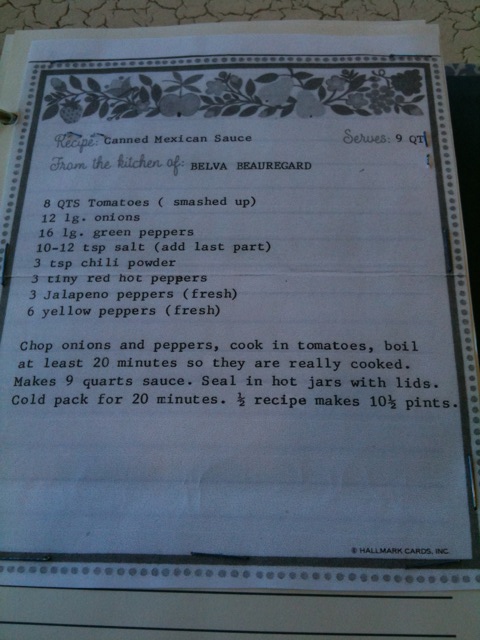 Recipe: Canned Mexican Sauce Serves: 9 QT
From the kitchen of: BELVA BEAUREGARD
8 QTS Tomatoes ( smashed up)
12 lg. onions
16 lg. green peppers
10-12 tsp salt (add last part)
3 tsp chili powder
3 tiny red hot peppers
3 Jalapeno peppers (fresh)
6 yellow peppers (fresh)
Chop onions and peppers, cook in tomatoes, boil
at least 20 minutes so they are really cooked.
Makes 9 quarts sauce. Seal in hot jars with lids.
Cold pack for 20 minutes. ½ recipe makes 10½ pints.
© HALLMARK CARDS, INC.